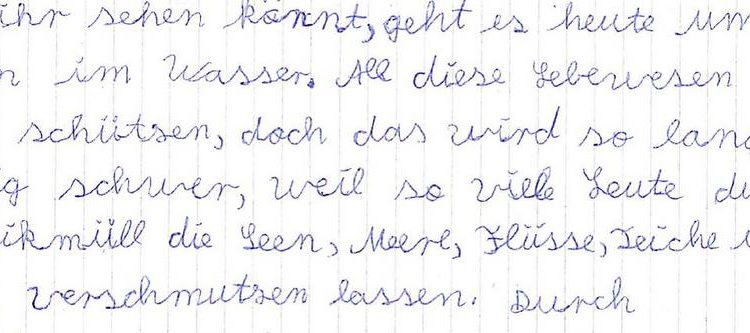 ihr sehen könnt, geht es heute um
n im Wasser. All diese Lebewesen
schützen, doch das wird so lang
ig schwer, weil so viele Leute du
ikmüll die Seen, Meere, Flüsse, Teiche u
verschmutzen lassen. Durch